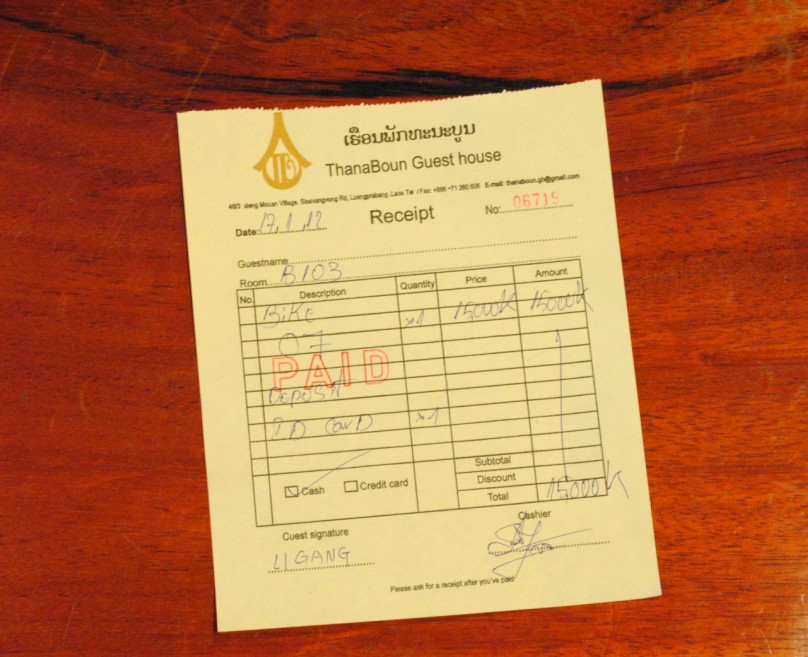 ເຮືອນພັກທະນະບູນ
ThanaBoun Guest house
Mouan Village, Sisavangvong Rd, Luangprabang ,Laos Tel / Fax: +856 +71 260 606 E-mail: thanaboun.gh@gmail.com
Date: 17. 1 .12 Receipt No: 06719
Guestname
Room B103
No. Description Quantity Price Amount
Bike x1 15000K 15000K
07
PAID
Deposit
ID CarD x1
Subtotal
Cash Credit card Discount
Total 15,000K
Cuest signature Cashier
LI GANG
Please ask for a receipt after you've paid